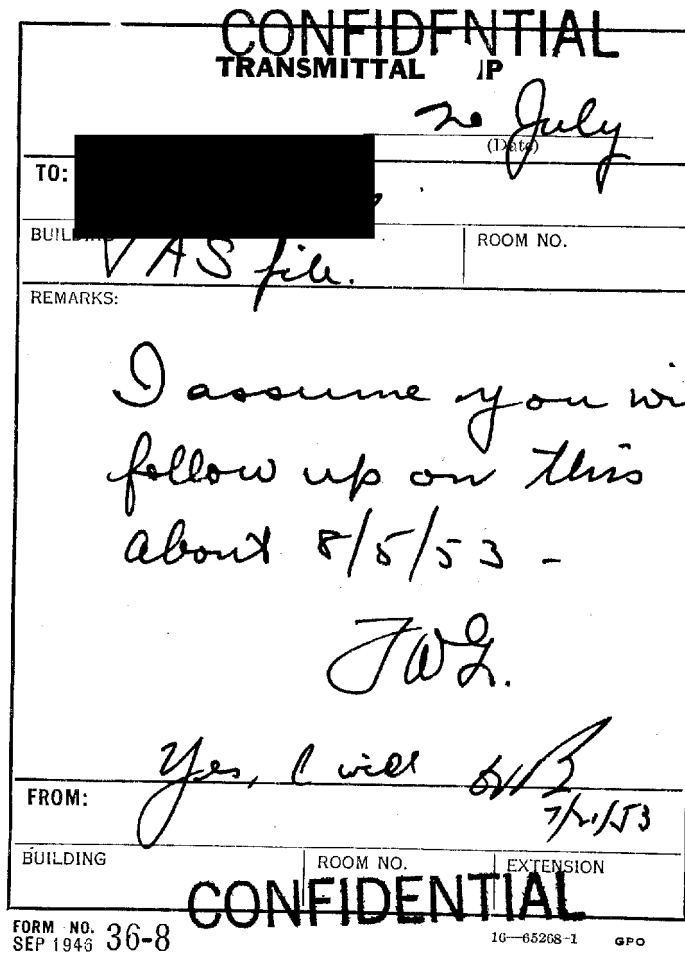 CONFIDENTIAL
TRANSMITTAL IP
20 July
(Date)
TO:
BUILDING
ROOM NO.
VAS file.
REMARKS:
I assume you wi
follow up on this
about 8/5/53 -
Yes, I will
7/21/53
FROM:
BUILDING
ROOM NO.
EXTENSION
CONFIDENTIAL
FORM NO. 36-8
SEP 1946
16—65268-1 GPO